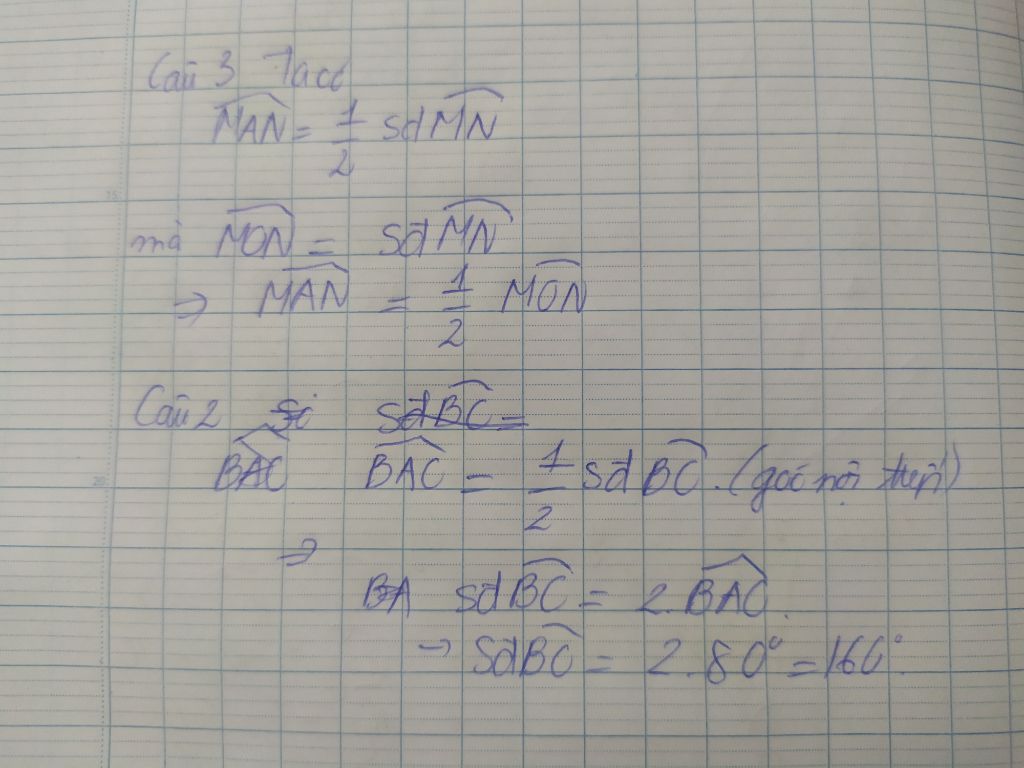 Câu 3 Ta có
MAN = 1/2 sđ MN
mà MON = sđ MN
→ MAN = 1/2 MON
Câu 2 Si sđ BC =
BAC BAC = 1/2 sđ BC. (góc nội tiếp)
⇒
BA sđ BC = 2. BAC.
→ Sđ BC = 2. 80° = 160°.